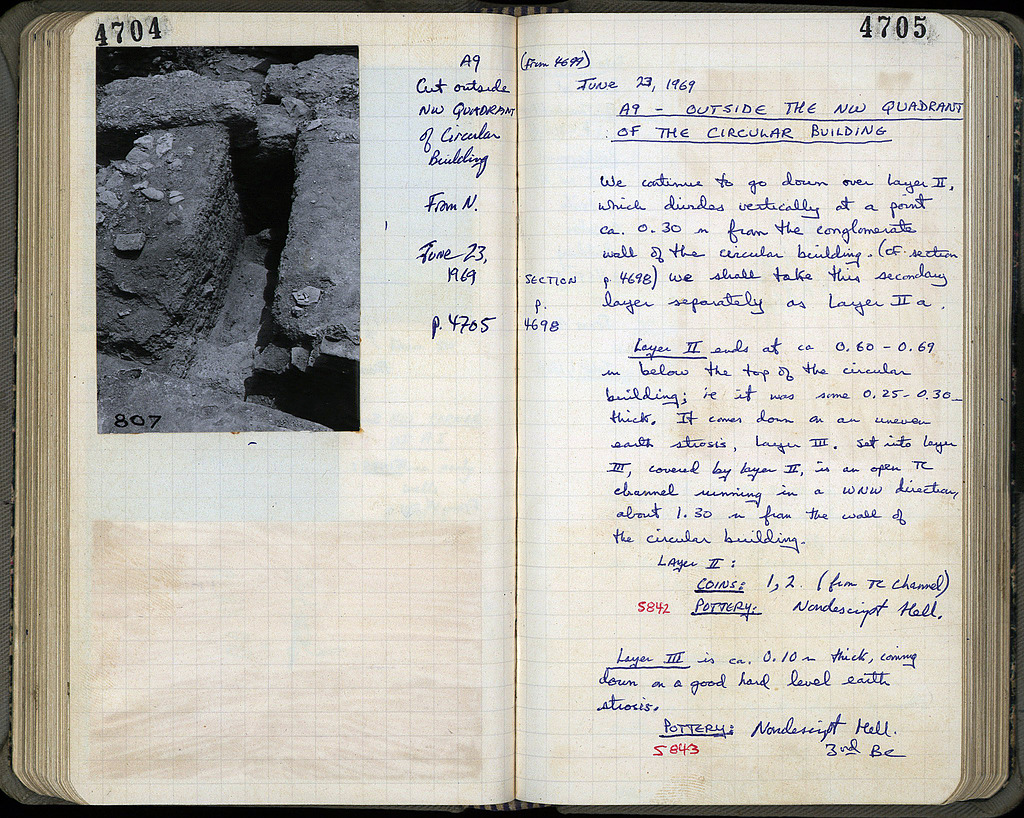 4704
807
A9
Cut outside
NW QUADRANT
of Circular
Building
From N.
June 23,
1969
p. 4705
4705
(From 4699)
June 23, 1969
A9 - OUTSIDE THE NW QUADRANT
OF THE CIRCULAR BUILDING
We continue to go down over layer II,
which divides vertically at a point
ca. 0.30 m from the conglomerate
wall of the circular building. (cf. section
p. 4698) we shall take this secondary
layer separately as Layer II a.
SECTION
p.
4698
Layer II ends at ca 0.60 - 0.69
m below the top of the circular
building; ie it was some 0.25 - 0.30
thick. It comes down on an uneven
earth strosis, Layer III. Set into layer
III, covered by layer II, is an open TC
channel running in a WNW direction,
about 1.30 m from the wall of
the circular building.
Layer II :
COINS: 1, 2. (from TC channel)
5842 POTTERY: Nondescript Hell.
Layer III is ca. 0.10 m thick, coming
down on a good hard level earth
strosis.
POTTERY: Nondescript Hell.
5843 3rd BC